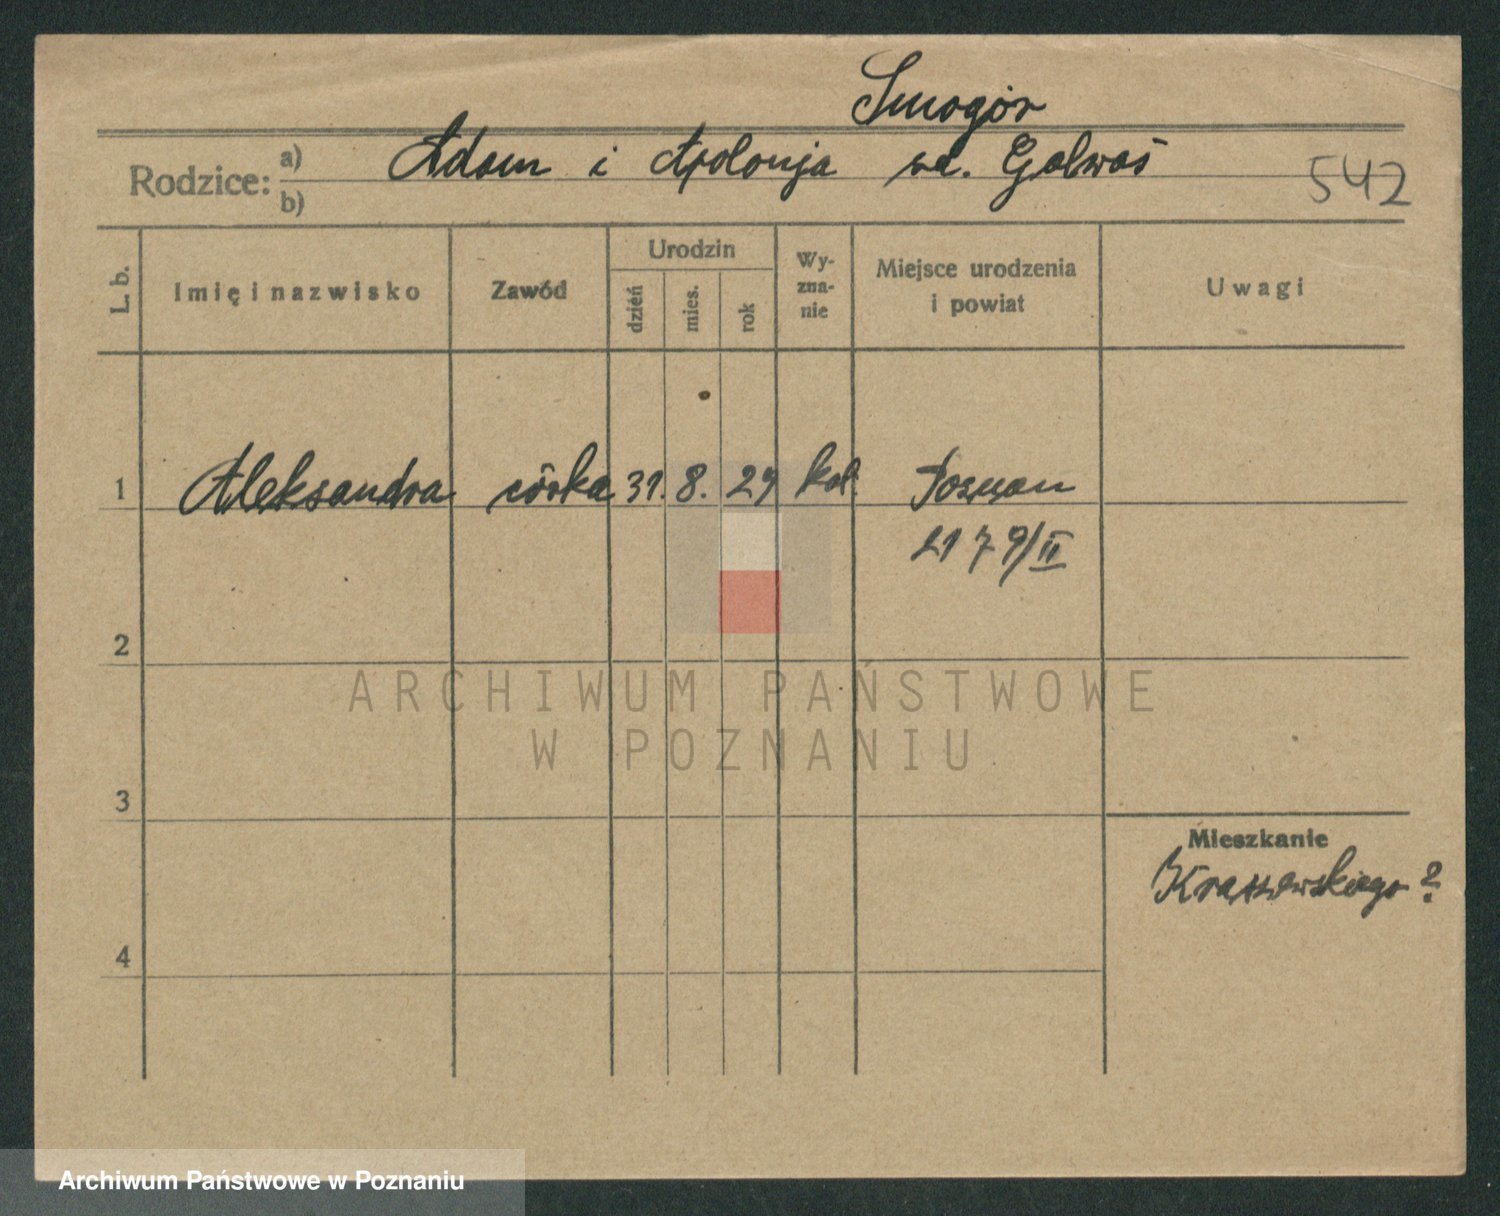 Smogór
Rodzice: a) Adam i Apolonja zd. Galwas 542
b)
L. b. Imię i nazwisko Zawód Urodzin dzień mies. rok Wyznanie Miejsce urodzenia i powiat Uwagi
1 Aleksandra córka 31. 8. 29 kat. Poznan
2179/II
2
ARCHIWUM PAŃSTWOWE
W POZNANIU
3
Mieszkanie
Kraszewskiego ?
4
Archiwum Państwowe w Poznaniu